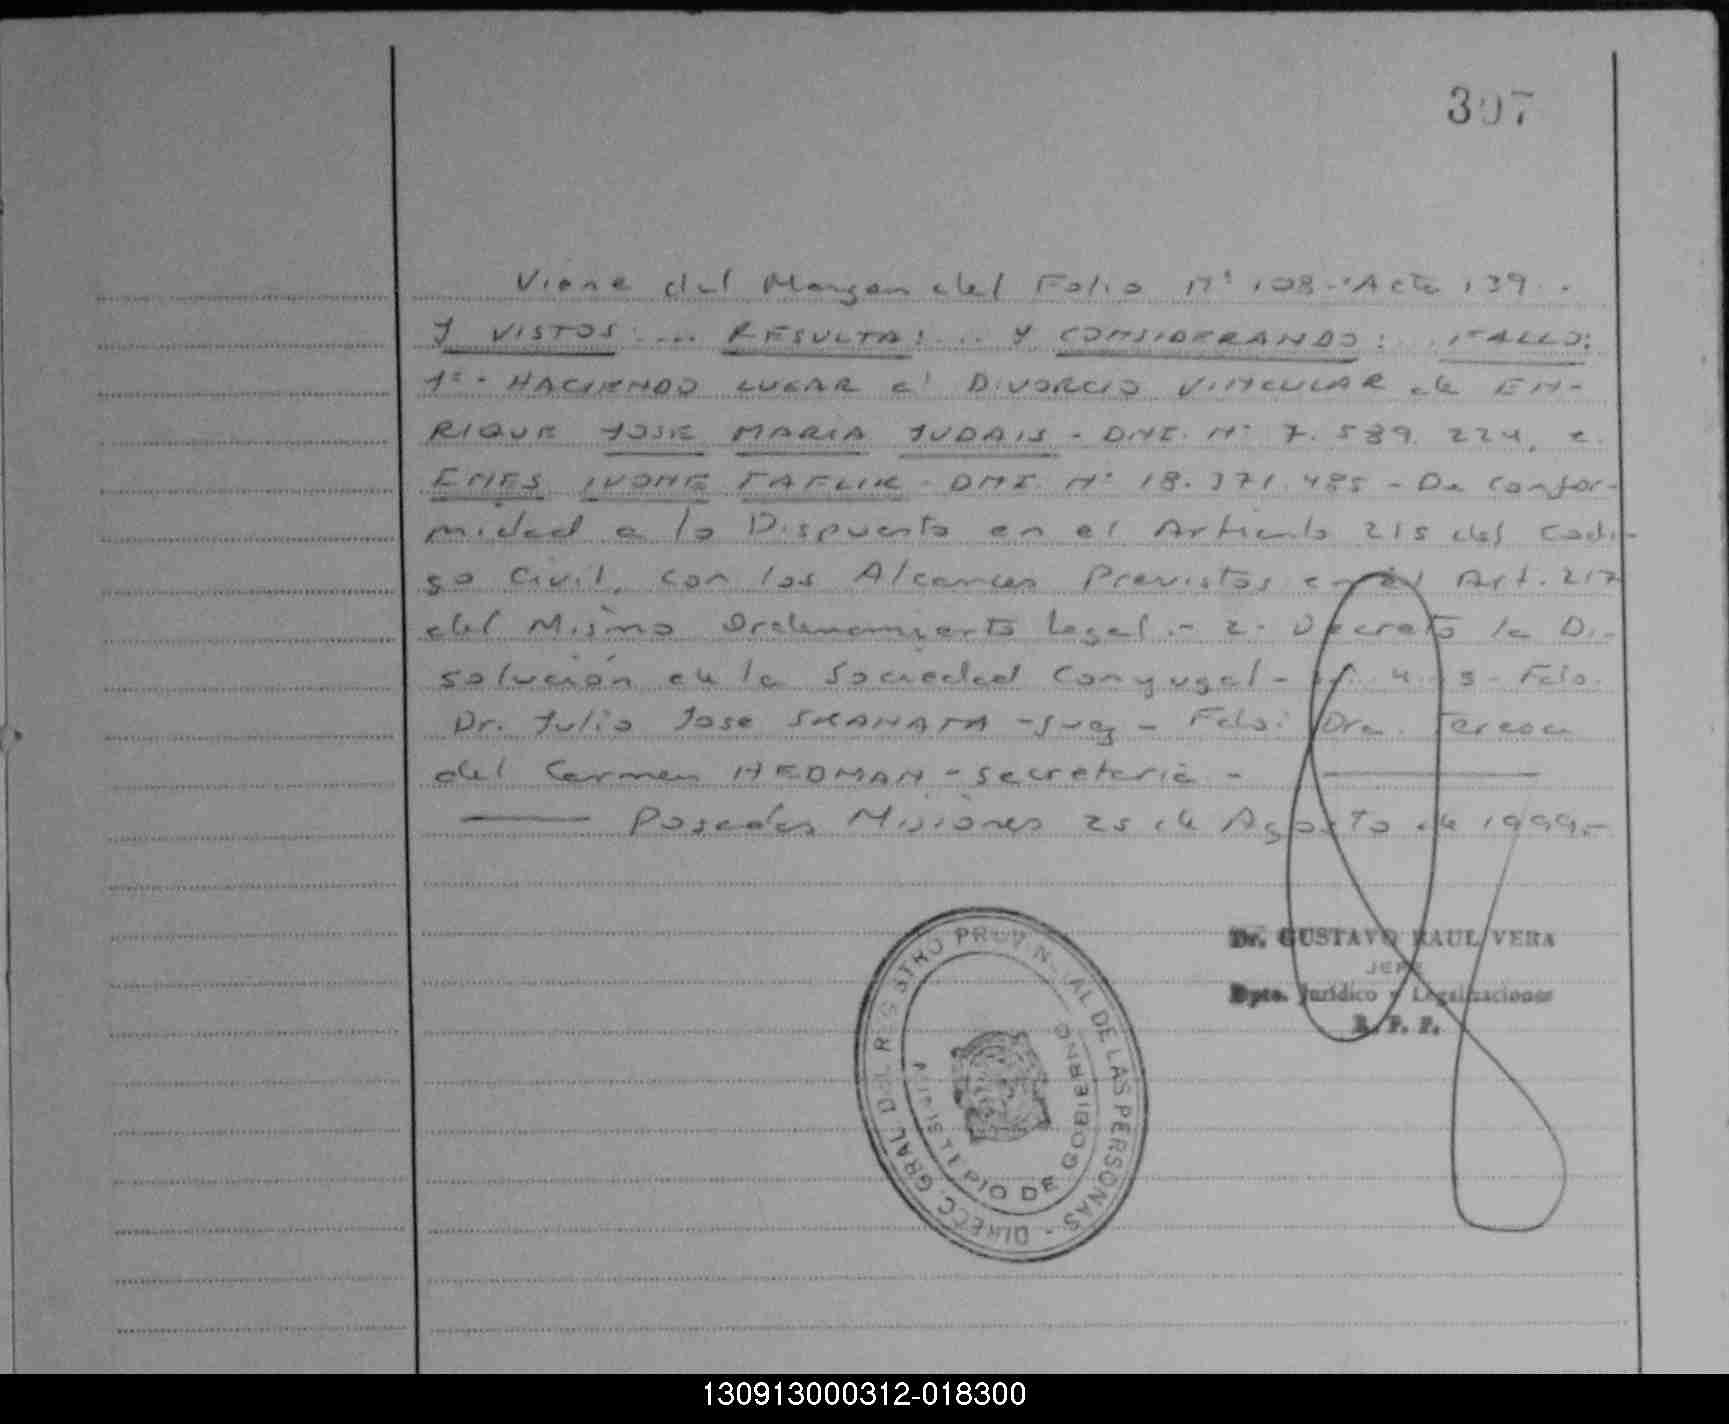 307
Viene del Margen del Folio Nº 108-Acta 139-.
Y VISTOS: .... RESULTA: ... Y CONSIDERANDO: ... FALLO:
1º- HACIENDO LUGAR al DIVORCIO VINCULAR de EN-
RIQUE JOSE MARIA JUDAIS - DNI. Nº 7.589.224, e
ENES IVONE FAFLIK - DNI. Nº 18.371.485 - De confor-
midad a lo Dispuesto en el Articulo 215 del Codi-
go Civil, con los Alcances Previstos en el Art. 217
del Mismo Ordenamiento Legal.- 2- Decreto la Di-
solución de la Sociedad Conyugal - 4 - 5 - Fdo.
Dr. Julio Jose SKANATA - Juez - Fdo: Dra. Teresa
del Carmen HEDMAN - secretaria -
Posadas Misiones 25 de Agosto de 1999.-
Dr. GUSTAVO RAUL VERA
JEFE
Dpto. Jurídico y Legalizaciones
R. P. P.
DIRECC. GRAL DEL REGISTRO PROVINCIAL DE LAS PERSONAS -
MINISTERIO DE GOBIERNO
130913000312-018300